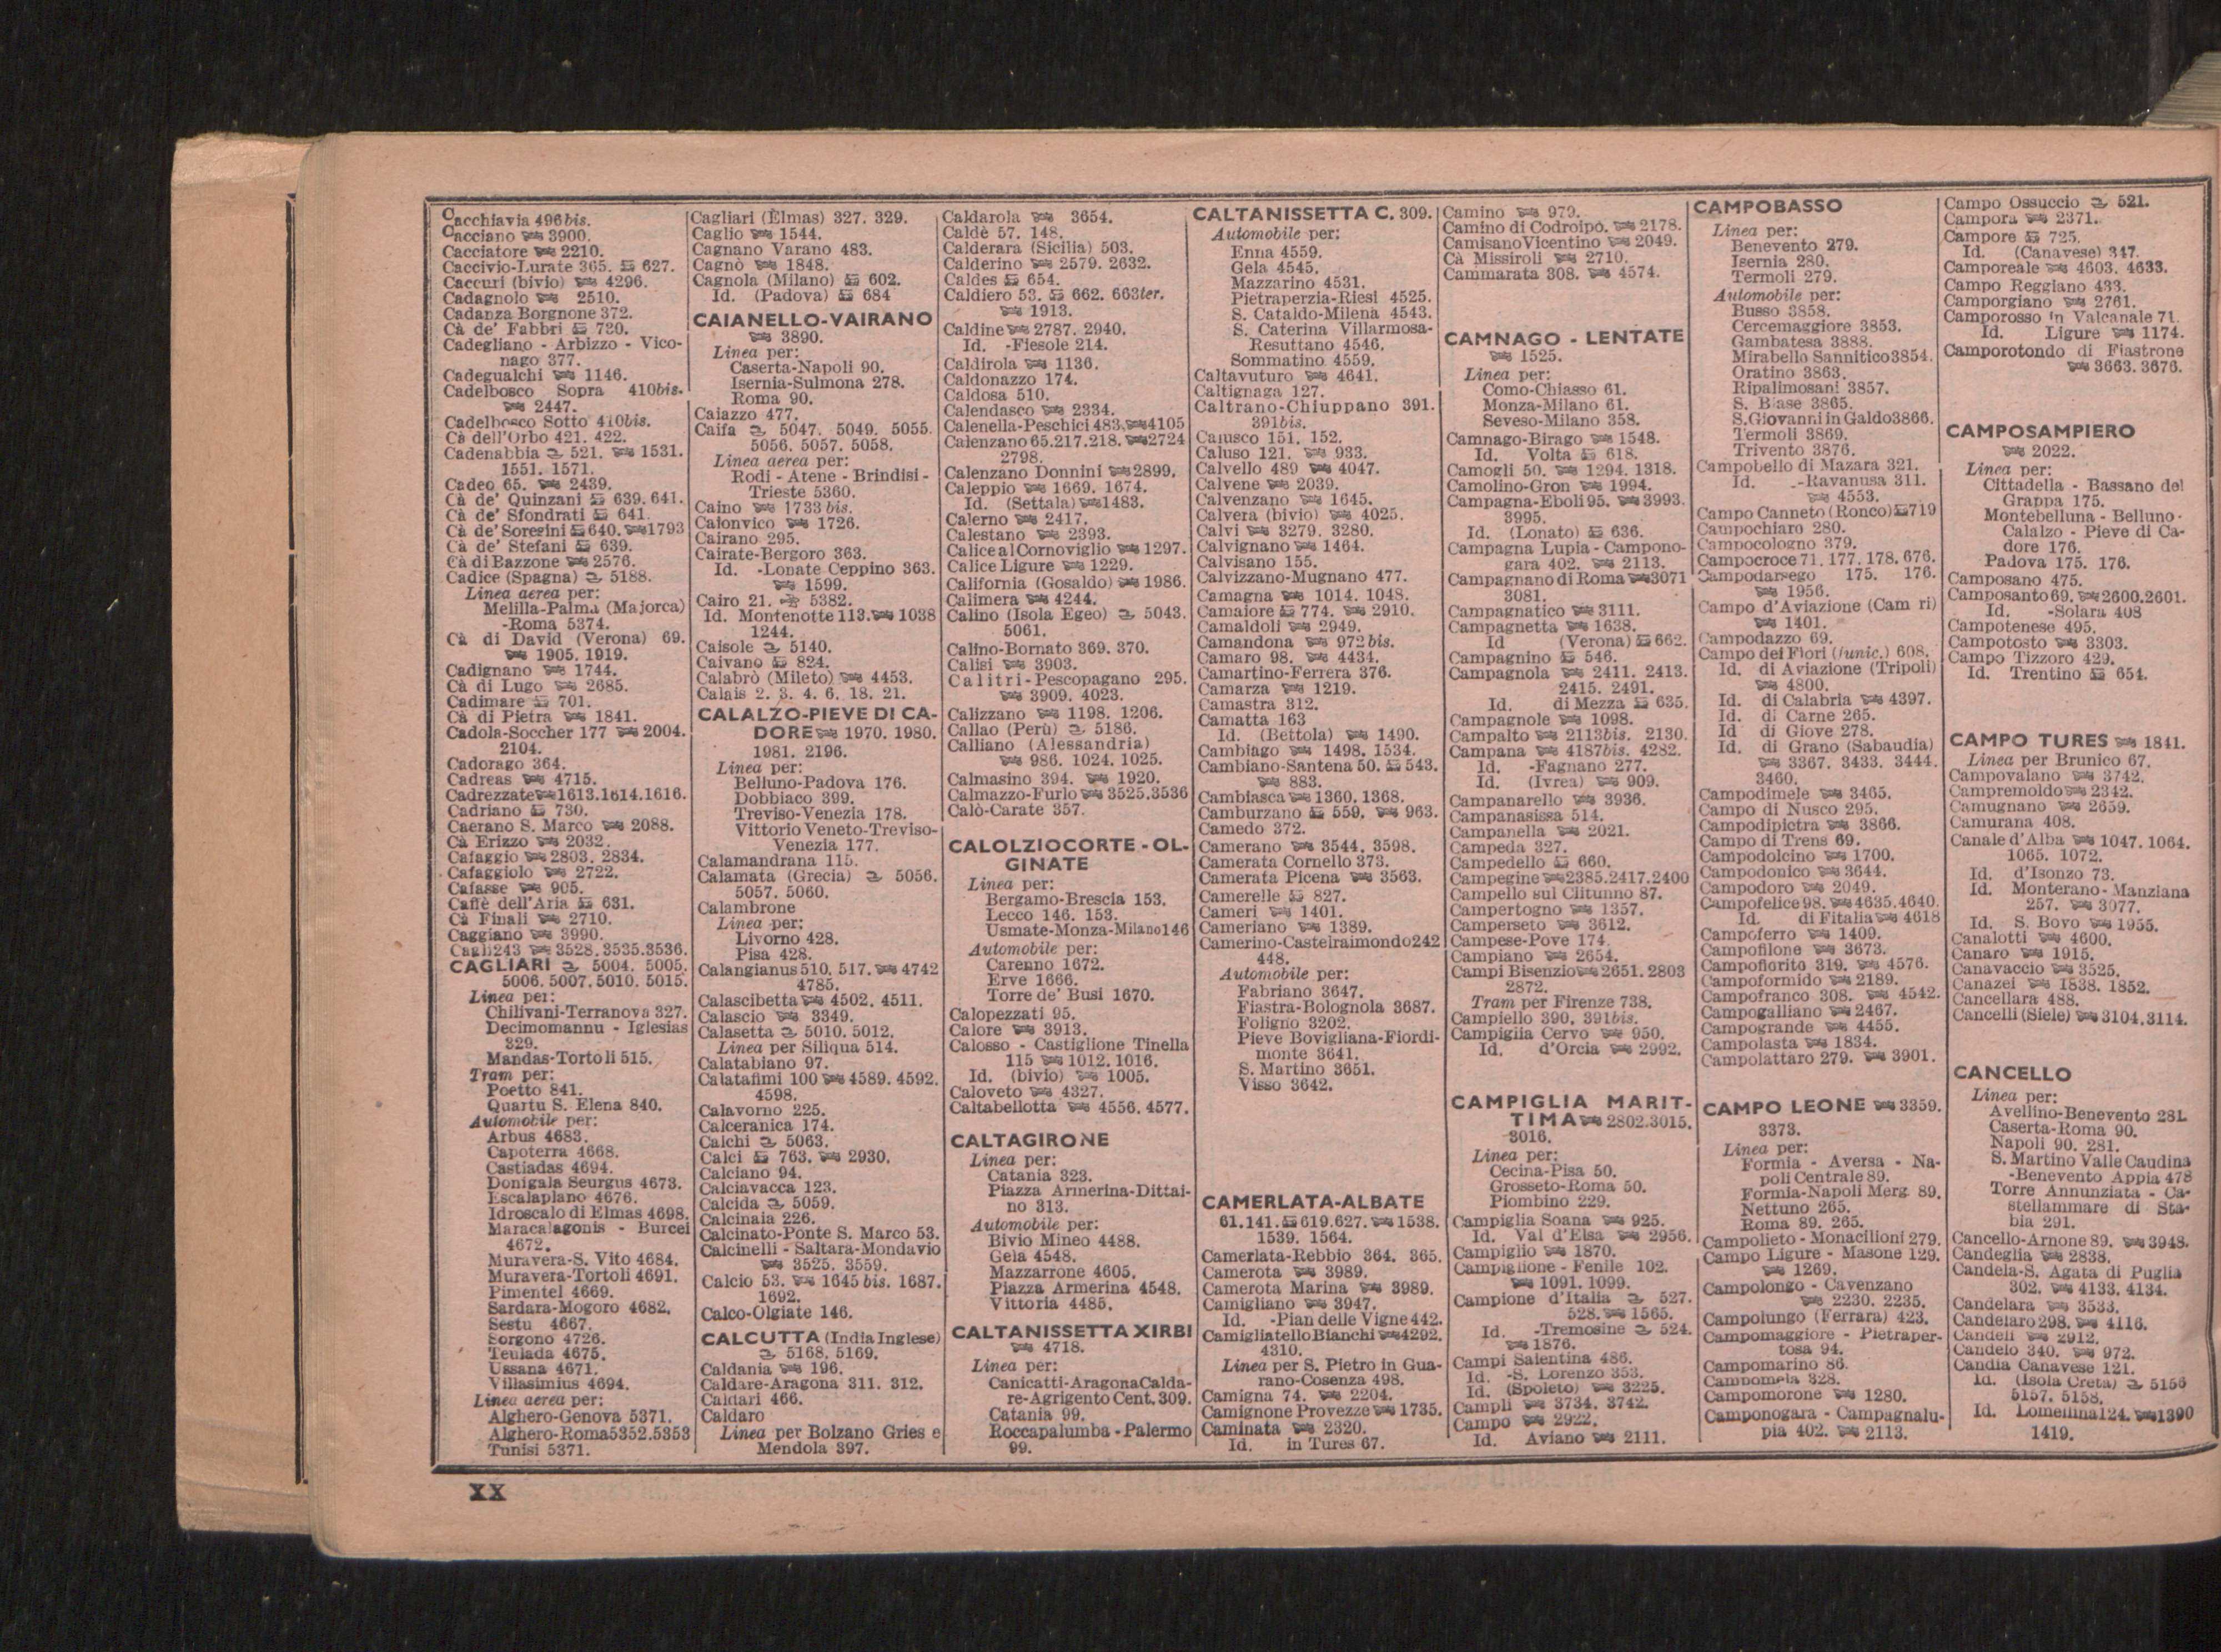 Cacchiavia 496bis.
Cacciano 3900.
Cacciatore 2210.
Caccivio-Lurate 365. 627.
Caccuri (bivio) 4296.
Cadagnolo 2510.
Cadanza Borgnone 372.
Cà de' Fabbri 730.
Cadegliano - Arbizzo - Vico-
nago 377.
Cadegualchi 1146.
Cadelbosco Sopra 410bis.
2447.
Cadelbosco Sotto 410bis.
Cà dell'Orbo 421. 422.
Cadenabbia 521. 1531.
1551. 1571.
Cadeo 65. 2439.
Cà de' Quinzani 639. 641.
Cà de' Sfondrati 641.
Cà de' Soregini 640. 1793
Cà de' Stefani 639.
Cà di Bazzone 2576.
Cadice (Spagna) 5188.
Linea aerea per:
Melilla-Palma (Majorca)
-Roma 5374.
Cà di David (Verona) 69.
1905. 1919.
Cadignano 1744.
Cà di Lugo 2685.
Cadimare 701.
Cà di Pietra 1841.
Cadola-Soccher 177 2004.
2104.
Cadorago 364.
Cadreas 4715.
Cadrezzate 1613.1614.1616.
Cadriano 730.
Caerano S. Marco 2088.
Cà Erizzo 2032.
Cafaggio 2803. 2834.
Cafaggiolo 2722.
Cafasse 905.
Caffè dell'Aria 631.
Cà Finali 2710.
Caggiano 3990.
Cagli 243 3528. 3535. 3536.
CAGLIARI 5004. 5005.
5006. 5007. 5010. 5015.
Linea per:
Chilivani-Terranova 327.
Decimomannu - Iglesias
329.
Mandas-Tortoli 515.
Tram per:
Poetto 841.
Quartu S. Elena 840.
Automobile per:
Arbus 4683.
Capoterra 4668.
Castiadas 4694.
Donigala Seurgus 4673.
Escalaplano 4676.
Idroscalo di Elmas 4698.
Maracalagonis - Burcei
4672.
Muravera-S. Vito 4684.
Muravera-Tortoli 4691.
Pimentel 4669.
Sardara-Mogoro 4682.
Sestu 4667.
Sorgono 4726.
Teulada 4675.
Ussana 4671.
Villasimius 4694.
Linea aerea per:
Alghero-Genova 5371.
Alghero-Roma 5352.5353
Tunisi 5371.
Cagliari (Elmas) 327. 329.
Caglio 1544.
Cagnano Varano 483.
Cagnò 1848.
Cagnola (Milano) 602.
Id. (Padova) 684
CAIANELLO-VAIRANO
3890.
Linea per:
Caserta-Napoli 90.
Isernia-Sulmona 278.
Roma 90.
Caiazzo 477.
Caifa 5047. 5049. 5055.
5056. 5057. 5058.
Linea aerea per:
Rodi - Atene - Brindisi -
Trieste 5360.
Caino 1733 bis.
Caionvico 1726.
Cairano 295.
Cairate-Bergoro 363.
Id. -Lonate Ceppino 363.
1599.
Cairo 21. 5382.
Id. Montenotte 113. 1038
1244.
Caisole 5140.
Caivano 824.
Calabrò (Mileto) 4453.
Calais 2. 3. 4. 6. 18. 21.
CALALZO-PIEVE DI CA-
DORE 1970. 1980.
1981. 2196.
Linea per:
Belluno-Padova 176.
Dobbiaco 399.
Treviso-Venezia 178.
Vittorio Veneto-Treviso-
Venezia 177.
Calamandrana 115.
Calamata (Grecia) 5056.
5057. 5060.
Calambrone
Linea per:
Livorno 428.
Pisa 428.
Calangianus 510. 517. 4742
4785.
Calascibetta 4502. 4511.
Calascio 3349.
Calasetta 5010. 5012.
Linea per Siliqua 514.
Calatabiano 97.
Calatafimi 100 4589. 4592.
4598.
Calavorno 225.
Calceranica 174.
Calchi 5063.
Calci 763. 2930.
Calciano 94.
Calciavacca 123.
Calcida 5059.
Calcinaia 226.
Calcinato-Ponte S. Marco 53.
Calcinelli - Saltara-Mondavio
3525. 3559.
Calcio 53. 1645 bis. 1687.
1692.
Calco-Olgiate 146.
CALCUTTA (India Inglese)
5168. 5169.
Caldania 196.
Caldare-Aragona 311. 312.
Caldari 466.
Caldaro
Linea per Bolzano Gries e
Mendola 397.
Caldarola 3654.
Caldè 57. 148.
Calderara (Sicilia) 503.
Calderino 2579. 2632.
Caldes 654.
Caldiero 53. 662. 663ter.
1913.
Caldine 2787. 2940.
Id. -Fiesole 214.
Caldirola 1136.
Caldonazzo 174.
Caldosa 510.
Calendasco 2334.
Calenella-Peschici 483. 4105
Calenzano 65.217.218. 2724
2798.
Calenzano Donnini 2899.
Caleppio 1669. 1674.
Id. (Settala) 1483.
Calerno 2417.
Calestano 2393.
Calice al Cornoviglio 1297.
Calice Ligure 1229.
California (Gosaldo) 1986.
Calimera 4244.
Calino (Isola Egeo) 5043.
5061.
Calino-Bornato 369. 370.
Calisi 3903.
Calitri-Pescopagano 295.
3909. 4023.
Calizzano 1198. 1206.
Callao (Perù) 5186.
Calliano (Alessandria)
986. 1024. 1025.
Calmasino 394. 1920.
Calmazzo-Furlo 3525.3536
Calò-Carate 357.
CALOLZIOCORTE - OL-
GINATE
Linea per:
Bergamo-Brescia 153.
Lecco 146. 153.
Usmate-Monza-Milano 146
Automobile per:
Carenno 1672.
Erve 1666.
Torre de' Busi 1670.
Calopezzati 95.
Calore 3913.
Calosso - Castiglione Tinella
115 1012. 1016.
Id. (bivio) 1005.
Caloveto 4327.
Caltabellotta 4556. 4577.
CALTAGIRONE
Linea per:
Catania 323.
Piazza Armerina-Dittai-
no 313.
Automobile per:
Bivio Mineo 4488.
Gela 4548.
Mazzarrone 4605.
Piazza Armerina 4548.
Vittoria 4485.
CALTANISSETTA XIRBI
4718.
Linea per:
Canicatti-Aragona Calda-
re-Agrigento Cent. 309.
Catania 99.
Roccapalumba - Palermo
99.
CALTANISSETTA C. 309.
Automobile per:
Enna 4559.
Gela 4545.
Mazzarino 4531.
Pietraperzia-Riesi 4525.
S. Cataldo-Milena 4543.
S. Caterina Villarmosa-
Resuttano 4546.
Sommatino 4559.
Caltavuturo 4641.
Caltignaga 127.
Caltrano-Chiuppano 391.
391bis.
Calusco 151. 152.
Caluso 121. 933.
Calvello 489 4047.
Calvene 2039.
Calvenzano 1645.
Calvera (bivio) 4025.
Calvi 3279. 3280.
Calvignano 1464.
Calvisano 155.
Calvizzano-Mugnano 477.
Camagna 1014. 1048.
Camaiore 774. 2910.
Camaldoli 2949.
Camandona 972bis.
Camaro 98. 4434.
Camartino-Ferrera 376.
Camarza 1219.
Camastra 312.
Camatta 163
Id. (Bettola) 1490.
Cambiago 1498. 1534.
Cambiano-Santena 50. 543.
883.
Cambiasca 1360. 1368.
Camburzano 559. 963.
Camedo 372.
Camerano 3544. 3598.
Camerata Cornello 373.
Camerata Picena 3563.
Camerelle 827.
Cameri 1401.
Cameriano 1389.
Camerino-Castelraimondo 242
448.
Automobile per:
Fabriano 3647.
Fiastra-Bolognola 3687.
Foligno 3202.
Pieve Bovigliana-Fiordi-
monte 3641.
S. Martino 3651.
Visso 3642.
CAMERLATA-ALBATE
61.141. 619.627. 1538.
1539. 1564.
Camerlata-Rebbio 364. 365.
Camerota 3989.
Camerota Marina 3989.
Camigliano 3947.
Id. -Pian delle Vigne 442.
Camigliatello Bianchi 4292.
4310.
Linea per S. Pietro in Gua-
rano-Cosenza 498.
Camigna 74. 2204.
Camignone Provezze 1735.
Caminata 2320.
Id. in Tures 67.
Camino 979.
Camino di Codroipo. 2178.
Camisano Vicentino 2049.
Cà Missiroli 2710.
Cammarata 308. 4574.
CAMNAGO - LENTATE
1525.
Linea per:
Como-Chiasso 61.
Monza-Milano 61.
Seveso-Milano 358.
Camnago-Birago 1548.
Id. Volta 618.
Camogli 50. 1294. 1318.
Camolino-Gron 1994.
Campagna-Eboli 95. 3993.
3995.
Id. (Lonato) 636.
Campagna Lupia - Campono-
gara 402. 2113.
Campagnano di Roma 3071
3081.
Campagnatico 3111.
Campagnetta 1638.
Id (Verona) 662.
Campagnino 546.
Campagnola 2411. 2413.
2415. 2491.
Id. di Mezza 635.
Campagnole 1098.
Campalto 2113bis. 2130.
Campana 4187bis. 4282.
Id. -Fagnano 277.
Id. (Ivrea) 909.
Campanarello 3936.
Campanasissa 514.
Campanella 2021.
Campeda 327.
Campedello 660.
Campegine 2385.2417.2400
Campello sul Clitunno 87.
Campertogno 1357.
Camperseto 3612.
Campese-Pove 174.
Campiano 2654.
Campi Bisenzio 2651. 2803
2872.
Tram per Firenze 738.
Campiello 390. 391bis.
Campiglia Cervo 950.
Id. d'Orcia 2992.
CAMPIGLIA MARIT-
TIMA 2802.3015.
3016.
Linea per:
Cecina-Pisa 50.
Grosseto-Roma 50.
Piombino 229.
Campiglia Soana 925.
Id. Val d'Elsa 2956.
Campiglio 1870.
Campiglione - Fenile 102.
1091. 1099.
Campione d'Italia 527.
528. 1565.
Id. -Tremosine 524.
1876.
Campi Salentina 486.
Id. -S. Lorenzo 353.
Id. (Spoleto) 3225.
Campli 3734. 3742.
Campo 2922.
Id. Aviano 2111.
CAMPOBASSO
Linea per:
Benevento 279.
Isernia 280.
Termoli 279.
Automobile per:
Busso 3858.
Cercemaggiore 3853.
Gambatesa 3888.
Mirabello Sannitico 3854.
Oratino 3863.
Ripalimosani 3857.
S. Biase 3865.
S. Giovanni in Galdo 3866.
Termoli 3869.
Trivento 3876.
Campobello di Mazara 321.
Id. -Ravanusa 311.
4553.
Campo Canneto (Ronco) 719
Campochiaro 280.
Campocologno 379.
Campocroce 71. 177. 178. 676.
Campodarsego 175. 176.
1956.
Campo d'Aviazione (Cam ri)
1401.
Campodazzo 69.
Campo dei Fiori (funic.) 608.
Id. di Aviazione (Tripoli)
4800.
Id. di Calabria 4397.
Id. di Carne 265.
Id di Giove 278.
Id. di Grano (Sabaudia)
3367. 3433. 3444.
3460.
Campodimele 3465.
Campo di Nusco 295.
Campodipietra 3866.
Campo di Trens 69.
Campodolcino 1700.
Campodonico 3644.
Campodoro 2049.
Campofelice 98. 4635.4640.
Id. di Fitalia 4618
Campoferro 1409.
Campofilone 3673.
Campofiorito 319. 4576.
Campoformido 2189.
Campofranco 308. 4542.
Campogalliano 2467.
Campogrande 4455.
Campolasta 1834.
Campolattaro 279. 3901.
CAMPO LEONE 3359.
3373.
Linea per:
Formia - Aversa - Na-
poli Centrale 89.
Formia-Napoli Merg. 89.
Nettuno 265.
Roma 89. 265.
Campolieto - Monacilioni 279.
Campo Ligure - Masone 129.
1269.
Campolongo - Cavenzano
2230. 2235.
Campolungo (Ferrara) 423.
Campomaggiore - Pietraper-
tosa 94.
Campomarino 86.
Campomela 328.
Campomorone 1280.
Camponogara - Campagnalu-
pia 402. 2113.
Campo Ossuccio 521.
Campora 2371.
Campore 725.
Id. (Canavese) 347.
Camporeale 4603. 4633.
Campo Reggiano 433.
Camporgiano 2761.
Camporosso in Valcanale 71.
Id. Ligure 1174.
Camporotondo di Fiastrone
3663. 3676.
CAMPOSAMPIERO
2022.
Linea per:
Cittadella - Bassano del
Grappa 175.
Montebelluna - Belluno -
Calalzo - Pieve di Ca-
dore 176.
Padova 175. 176.
Camposano 475.
Camposanto 69. 2600.2601.
Id. -Solara 408
Campotenese 495.
Campotosto 3303.
Campo Tizzoro 429.
Id. Trentino 654.
CAMPO TURES 1841.
Linea per Brunico 67.
Campovalano 3742.
Campremoldo 2342.
Camugnano 2659.
Camurana 408.
Canale d'Alba 1047. 1064.
1065. 1072.
Id. d'Isonzo 73.
Id. Monterano - Manziana
257. 3077.
Id. S. Bovo 1955.
Canalotti 4600.
Canaro 1915.
Canavaccio 3525.
Canazei 1838. 1852.
Cancellara 488.
Cancelli (Siele) 3104.3114.
CANCELLO
Linea per:
Avellino-Benevento 281.
Caserta-Roma 90.
Napoli 90. 281.
S. Martino Valle Caudina
-Benevento Appia 478
Torre Annunziata - Ca-
stellammare di Sta-
bia 291.
Cancello-Arnone 89. 3948.
Candeglia 2838.
Candela-S. Agata di Puglia
302. 4133. 4134.
Candelara 3533.
Candelaro 298. 4116.
Candeli 2912.
Candelo 340. 972.
Candia Canavese 121.
Id. (Isola Creta) 5156
5157. 5158.
Id. Lomellina 124. 1390
1419.
XX